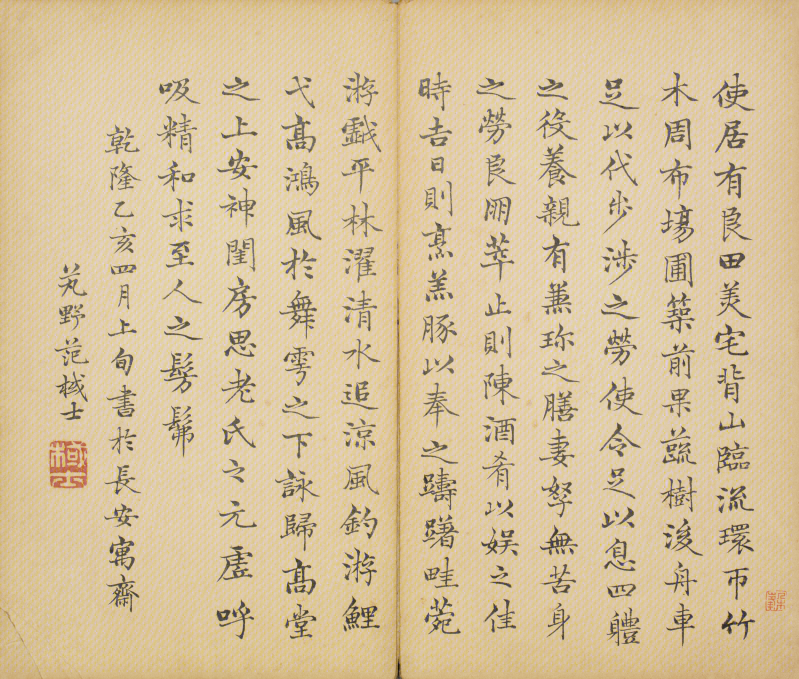 使居有良田美宅背山臨流環帀竹
木周布場圃築前果蔬樹後舟車
足以代步涉之勞使令足以息四體
之役養親有兼珍之膳妻孥無苦身
之勞良朋萃止則陳酒肴以娛之佳
時吉日則烹羔豚以奉之躊躇畦菀
游戲平林濯清水追涼風釣游鯉
弋高鴻風於舞雩之下詠歸高堂
之上安神閨房思老氏之元虛呼
吸精和求至人之髣髴
乾隆乙亥四月上旬書於長安寓齋
芄野范棫士